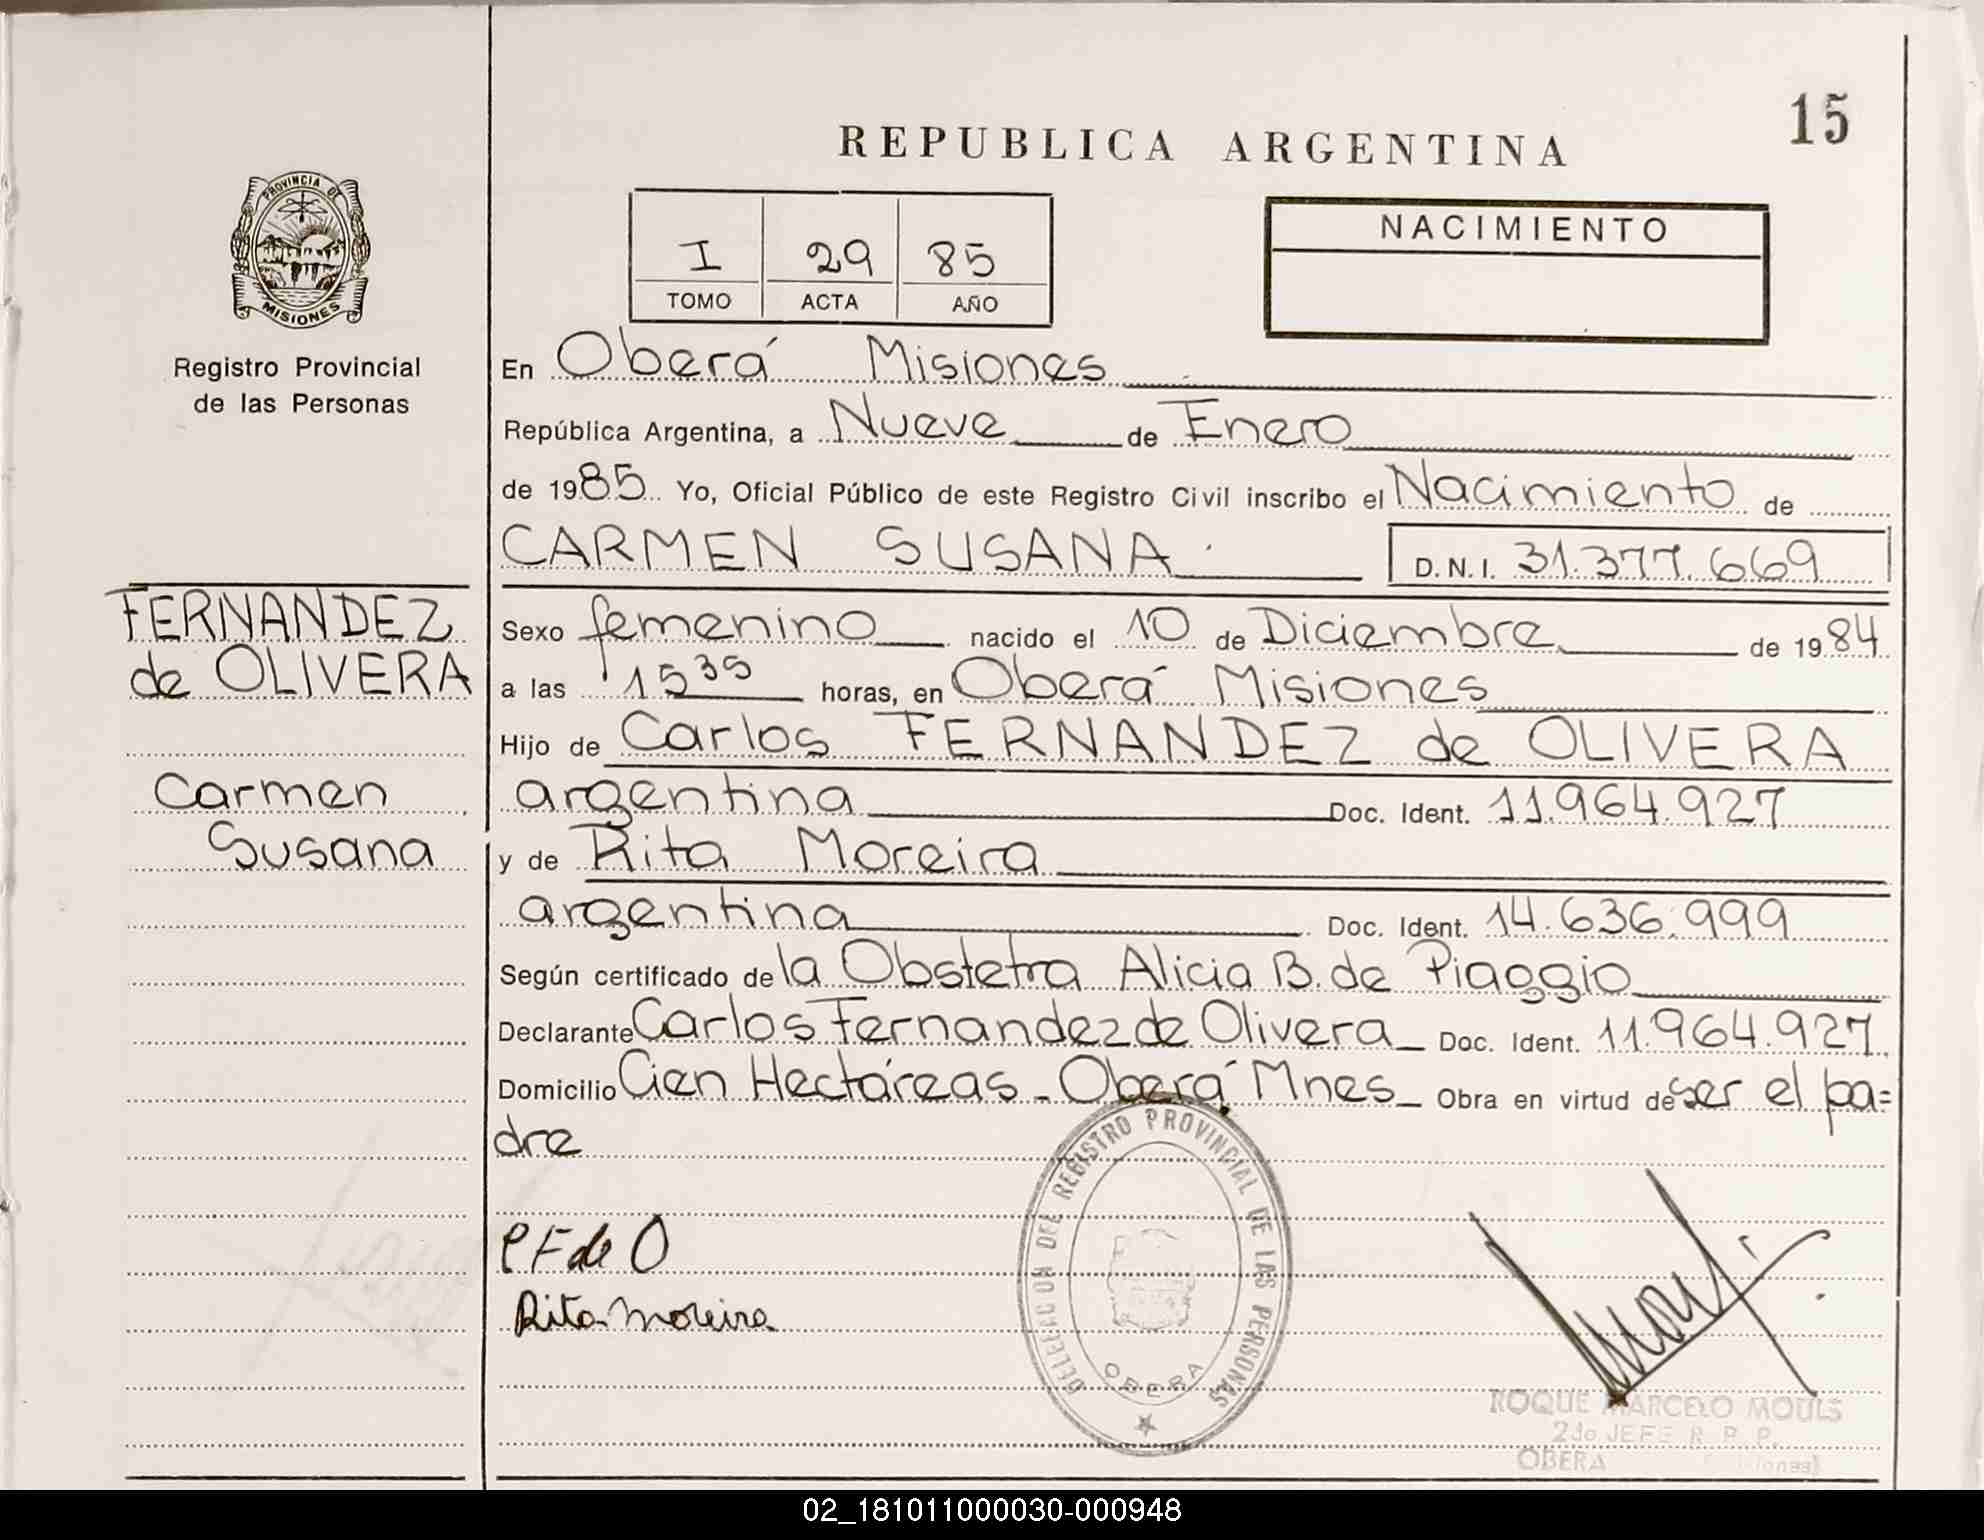 15
REPUBLICA ARGENTINA
PROVINCIA DE
MISIONES
I 29 85
TOMO ACTA AÑO
NACIMIENTO
Registro Provincial
de las Personas
En Oberá Misiones
República Argentina, a Nueve de Enero
de 1985 Yo, Oficial Público de este Registro Civil inscribo el Nacimiento de
CARMEN SUSANA D.N.I. 31.377.669
FERNANDEZ
de OLIVERA
Carmen
Susana
Sexo femenino nacido el 10 de Diciembre de 1984
a las 15 35 horas, en Oberá Misiones
Hijo de Carlos FERNANDEZ de OLIVERA
argentina Doc. Ident. 11.964.927
y de Rita Moreira
argentina Doc. Ident. 14.636.999
Según certificado de la Obstetra Alicia B. de Piaggio
Declarante Carlos Fernandez de Olivera Doc. Ident. 11.964.927
Domicilio Cien Hectáreas - Oberá Mnes Obra en virtud de ser el pa=
dre
DELEGACION DEL REGISTRO PROVINCIAL DE LAS PERSONAS
OBERA
C F de O
Rita Moreira
ROQUE MARCELO MOULS
2do JEFE R. P. P.
OBERA
02_181011000030-000948